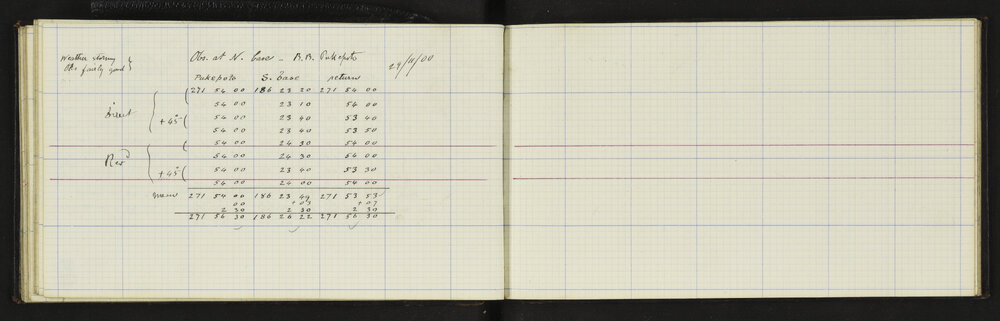 Weather stormy
Obs. fairly good }
Obs. at N. base – R.B. Pukepoto 29/11/00
Pukepoto S. base return
271 54 00 186 23 20 271 54 00
54 00 23 10 54 00
Direct +45° 54 00 23 40 53 40
54 00 23 40 53 50
54 00 24 30 54 00
Revd 54 00 24 30 54 00
+45° 54 00 23 40 53 30
54 00 24 00 54 00
mean 271 54 00 186 23 49 271 53 53
00 + 03 + 07
2 30 2 30 2 30
271 56 30 186 26 22 271 56 30